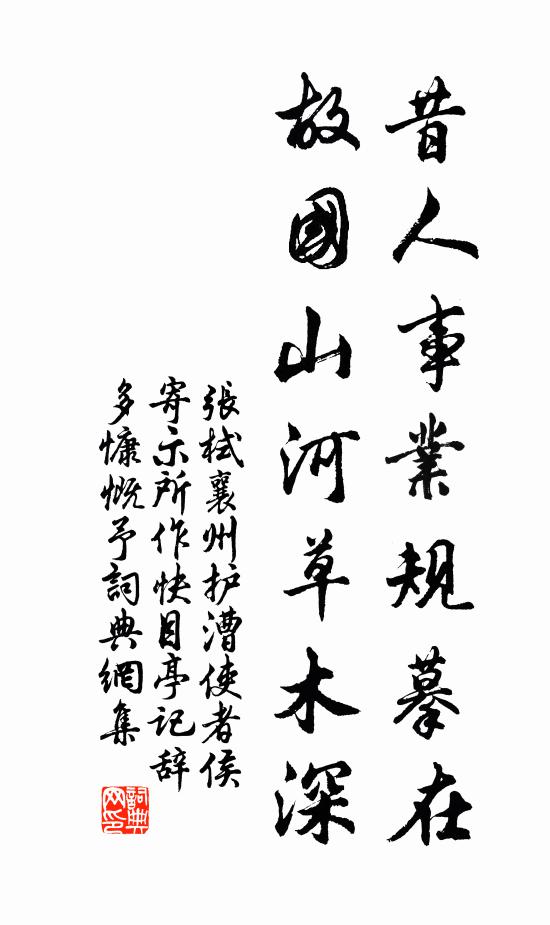 昔人事業規摹在
故國山河草木深
張栻襄州护漕使者侯
寄示所作快目亭記辞
多慷慨予詞典網集
詞典网印